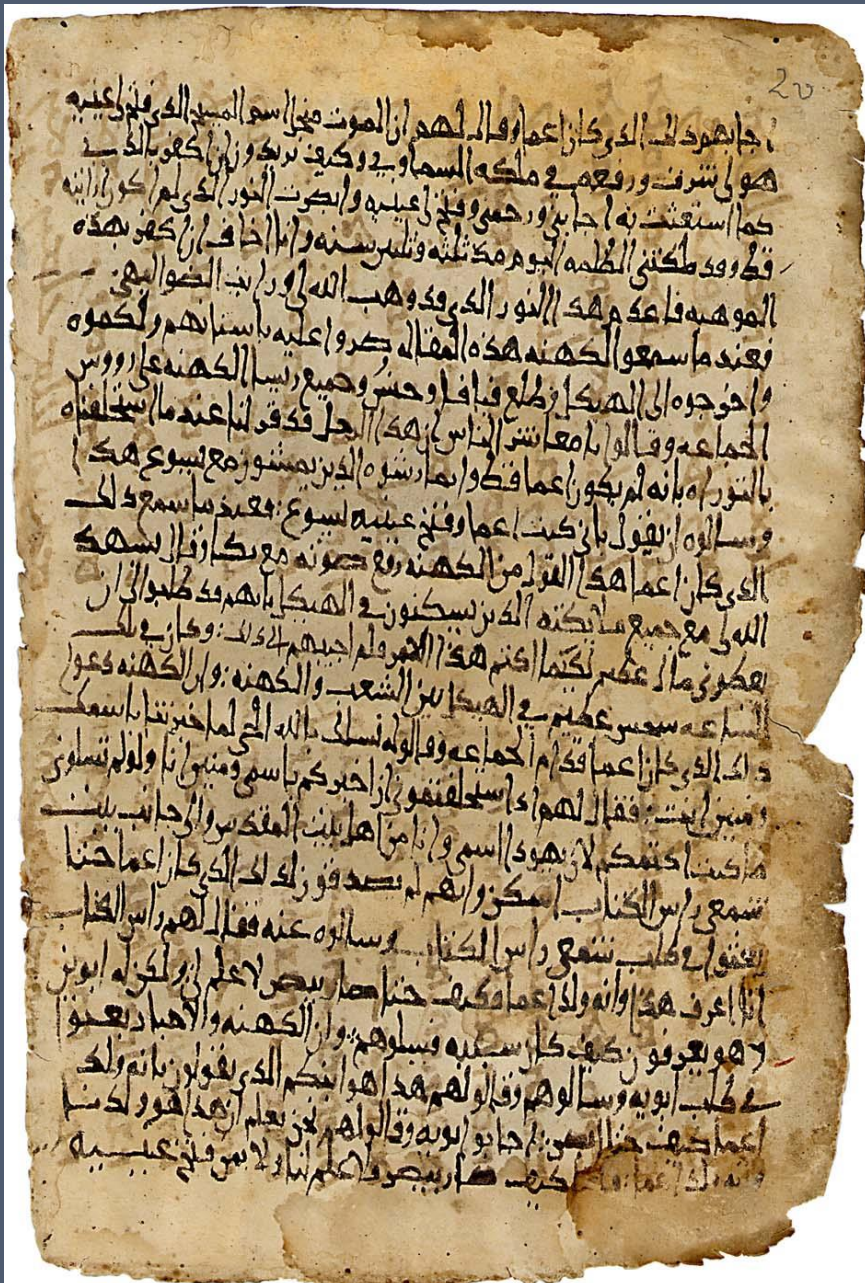 20
اجابهم ذلك الذى كان اعما وقال لهم ان الموت من اجل اسم المسيح الذى فتح لى عينيه
هو لى شرف ورفعه في ملكه السماوي وكيف تريدون ان اكفر بالذي
لما استغثت به اجابني ورحمني وفتح لى عينيه وابصرت النور الذى لم اكون راينه
قط وقد ملكتنى الظلمه اليوم مذ ثلثه وثلثين سنه وانا اخاف ان اكفر بهذه
الموهبه فاعدم هذا النور الذى قد وهب الله لى ورايت الضوا البهي
فعند ما سمعوا الكهنه هذه المقاله صروا عليه باسنانهم ولكموه
واخرجوه الى الهيكل وطلع قيافا وحنن وجميع ريسا الكهنه على رووس
الجماعه وقالوا يا معاشر الناس ان هذا الرجل قد قر لنا عند ما استحلفناه
بالتوراه بانه لم يكون اعما قط وانما رشوه الذين يمشون مع يسوع هكذا
وسالوه ان يقول باني كنت اعما وفتح عينيه يسوع: فعند ما سمع ذلك
الذى كان اعما هذا القول من الكهنه رفع صوته مع بكا وقال يشهد
الله لى مع جميع ملايكته الذين يسكنون في الهيكل بانهم قد طلبوا الى ان
يعطونى مال عظيم لكيما اكتم هذا الامر ولم اجيبهم الى ذلك: وكان في تلك
الساعه سجس عظيم في الهيكل بين الشعب والكهنه: وان الكهنه دعوا
ذلك الذى كان اعما قدام الجماعه وقالوا له نسلك بالله الحي لما خبرتنا باسمك
ومنين انت: فقال لهم اذا استحلفتمونى ان اخبركم باسمى ومنين انا ولو لم تسلونى
ما كنت اكتمكم لان يهودا اسمى وانا من اهل بيت المقدس والى جانب بيت
شمعى راس الكتاب اسكن وانهم لم يصدقون لذلك الذى كان اعما حتا
بعثوا في طلب شمعى راس الكتاب وسالوه عنه فقال لهم راس الكتاب
انا اعرف هذا وانه ولد اعما وكيف حتا صار يبصر لا علم لى ولكن له ابوين
هو يعرفون كيف كان سببه فسلوهم: وان الكهنه والاحبار بعثوا
في طلب ابويه وسالوهم وقالو لهم هذا هوا ابنكم الذى تقولون بانه ولد
اعما كيف حتا ابصر: اجابو ابويه وقالوا لهم نحن نعلم ان هذا هو ولدنا
وانه ولد اعما: كيف صار يبصر لا علم لنا ولا بمن فتح عينيه